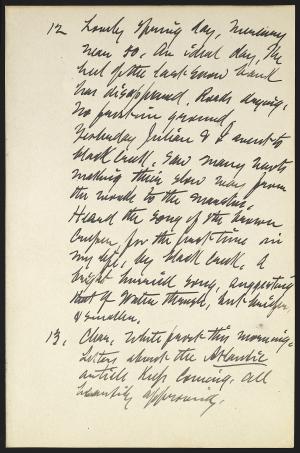 12 Lovely Spring day, Mercury
near 50. An ideal day, The
last of the last snow bank
has disappeared. Roads drying.
No frost in ground.
Yesterday Julian & I went to
black creek. Saw many newts
making their slow way from
the woods to the marshes.
Heard the song of the brown
creeper for the first time in
my life, by black creek. A
bright hurried song, suggesting
that of Water Thrush, but
& smaller.
13. Clear, White frost this morning.
Letters about the Atlantic
article keep coming. All
heartily approving.